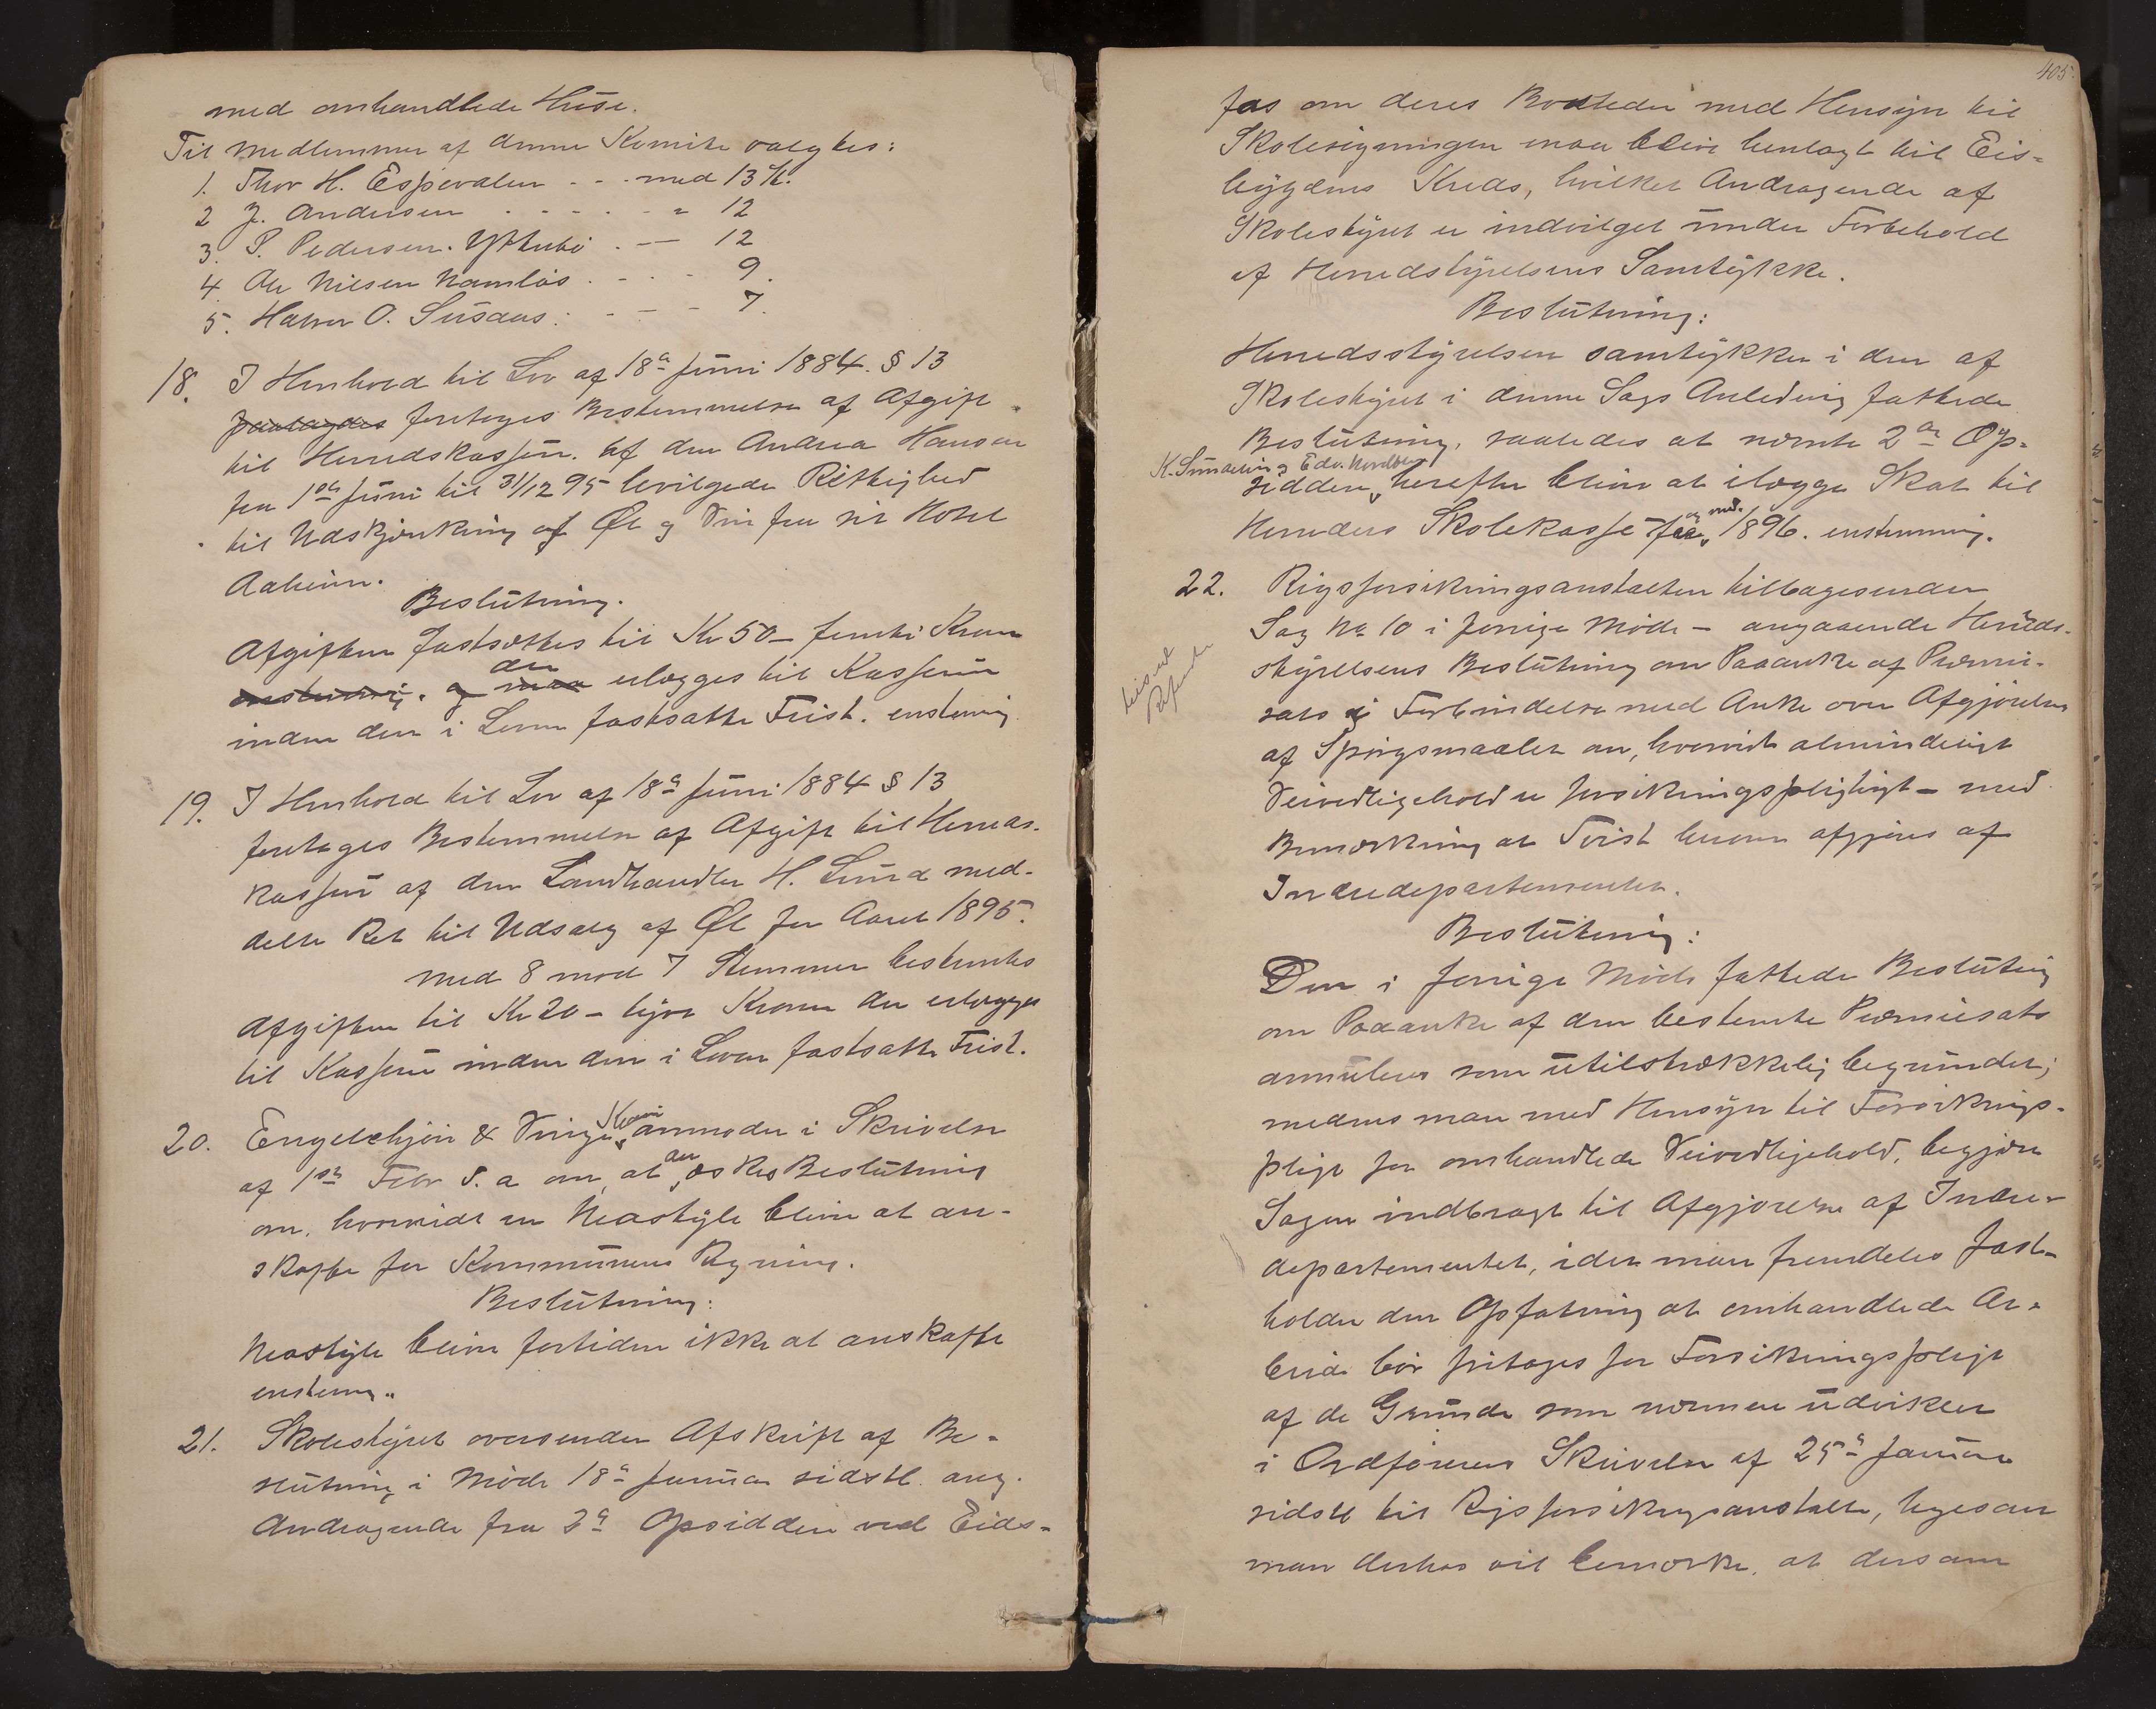 med omhandlede Huse.
Til Medlemmer af denne Komite valgtes:
1. Thor H. Espevalen - - - med 13 St.
2 J. Andersen - - - - - - " 12
3. P. Pedersen. - — 12
4. Ole Nilsen Namløs. - - - 9.
5. Halvor O. - - - 7.
18. I Henhold til Lov af 18de Juni 1884. § 13
paalægges foretoges Bestemmelse af Afgift
til Herredskassen. af den Andrea Hansen
fra 1ste Juni til 31/12 95 bevilgede Rettighed
til Udskjænkning af Øl og Vin fra sit Hotel
Aaheim.
Beslutning.
Afgiften fastsættes til Kr 50 – femti Kroner
enstemmig. og maa der erlægges til Kassereren
inden den i Loven fastsatte Frist. enstemmig
19. I Henhold til Lov af 18de Juni 1884 § 13
foretages Bestemmelse af Afgift til Herreds-
kassen af den Landhandler H. Lund med-
delte Ret til Udsalg af Øl for Aaret 1895.
Med 8 mod 7 Stemmer bestemtes
Afgiften til Kr 20 – tyve Kroner der erlægges
til Kassereren inden den i Loven fastsatte Frist.
20. & anmoder i Skrivelse
af 1ste Febr d. a om, at der æskes Beslutning
om, hvorvidt en bliver at an-
skaffe for Kommunens Regning.
Beslutning:
bliver fortiden ikke at anskaffe
enstemm.
21. Skolestyret oversender Afskrift af Be-
slutning i Møde 18de Januar sidstl. ang.
Andragende fra 2de Opsiddere ved Eids-
405.
fos om deres Bosteder med Hensyn til
Skoleligningen maa blive henlagt til Eis-
bygdens Kreds, hvilket Andragende af
Skolestyret er indvilget under Forbehold
af Herredstyrelsens Samtykke.
Beslutning:
Herredsstyrelsen samtykker i den af
Skolestyret i denne Sags Anledning fattede
Beslutning, saaledes at nævnte 2de Op-
K. og Edv.
siddere, herefter bliver at ilægge Skat til
Herredets Skolekasse fra og med 1896. enstemmig.
22. Rigsforsikringsanstalten tilbagesender
Sag No 10 i forrige Møde – angaaende Herreds-
styrelsens Beslutning om Paaanke af Præmie-
sats i Forbindelse med Anke over Afgjørelsen
af Spørgsmaalet om, hvorvidt almindeligt
Veivedligehold er forsikringspligtigt – med
Bemærkning at Tvist herom afgjøres af
Indredepartementet.
Beslutning:
Den i forrige Møde fattede Beslutning
om Paaanke af den bestemte Præmiesats
annuleres som utilstrækkelig begrundet;
medens man med Hensyn til Forsikrings-
pligt for omhandlede Veivedligehold, begjærer
Sagen indbragt til Afgjørelse af Indre-
departementet, idet man fremdeles fast-
holder den Opfatning at omhandlede Ar-
beide bør fritages for Forsikringspligt
af de Grunde som nærmere udvikles
i Ordførerens Skrivelse af 25de Januar
sidstl til Rigsforsikringsanstalten, ligesom
man derhos vil bemærke, at dersom